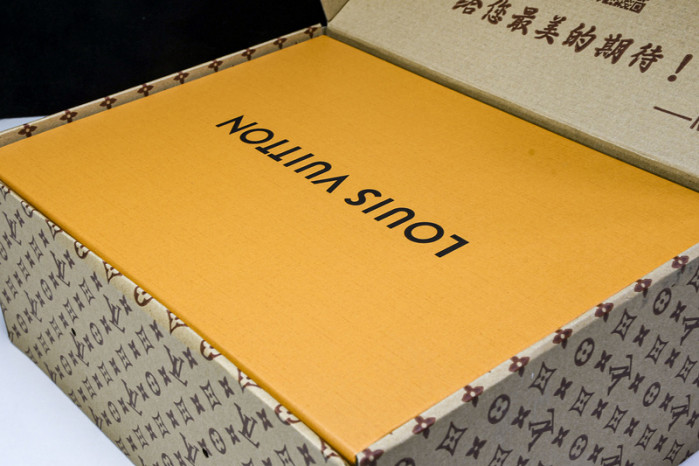 给您最美的期待！
LOUIS VUITTON